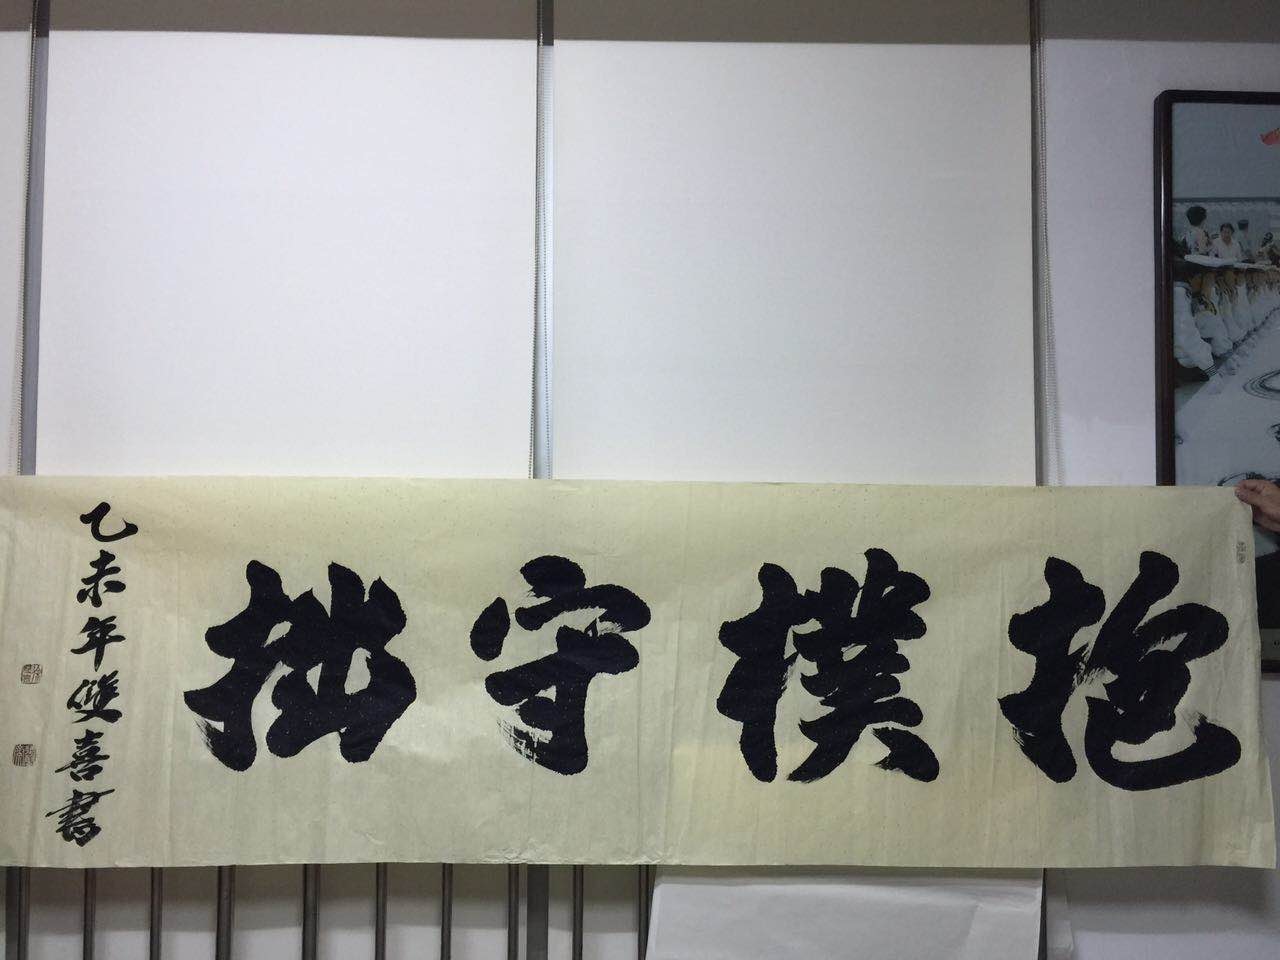 抱樸守拙
乙未年雙喜書